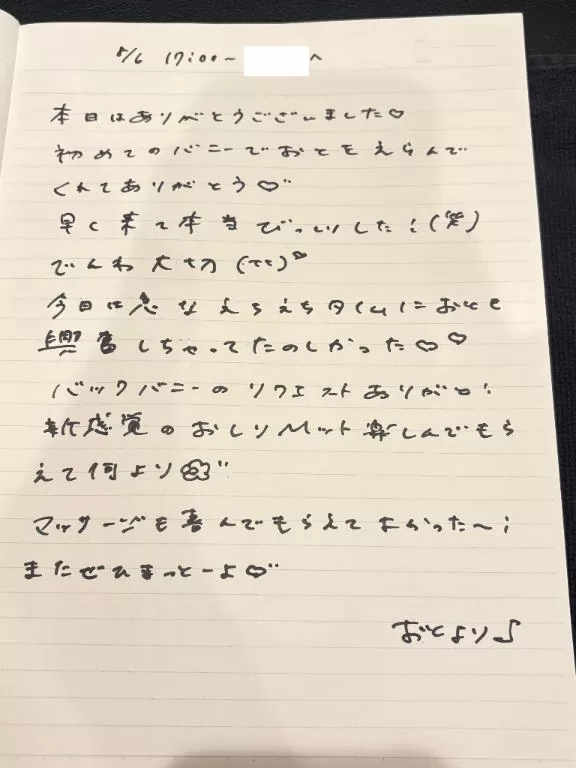 5/6 17:00~ へ
本日はありがとうございました♡
初めてのバニーでおとをえらんで
くれてありがとう♡
早く来て本当びっくりした!(笑)
でんわ大切(TT)
今日は急なえちえちタイムにおとも
興奮しちゃってたのしかった♡♡
バックバニーのリクエストありがと!
新感覚のおしりMット楽しんでもら
えて何より
マッサージも喜んでもらえてよかった〜!
またぜひまっとーよ♡
おとより♪